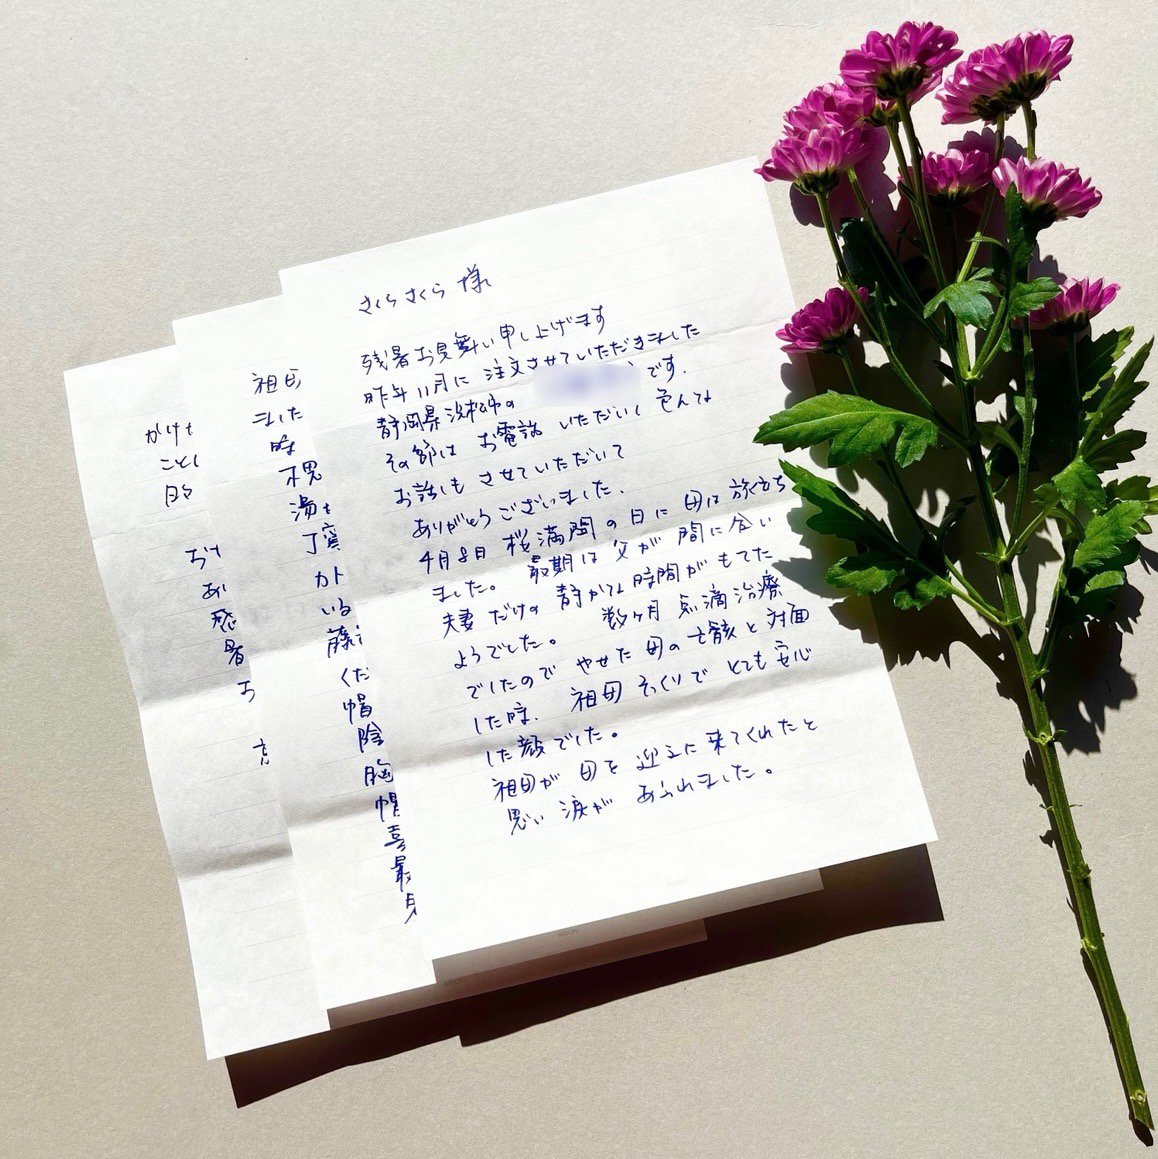 さくらさくら 様
残暑お見舞い申し上げます
昨年11月に 注文させていただきました
静岡県浜松市の です.
その節は お電話 いただいて 色んな
お話しも させていただいて
ありがとうございました.
4月8日 桜満開の日に 母は 旅立ち
ました。 最期は 父が 間に合い
夫妻だけの 静かな時間がもてた
ようでした。 数ヶ月 点滴治療
でしたので やせた母の亡骸と対面
した時、 祖母そっくりで とても安心
した顔でした。
祖母が 母を 迎えに来てくれたと
思い 涙が あふれました。
祖母
ました
時
湯も
丁寧
カト
いる
くだ
帽
陰
胸
帽
喜
最
かけ
こと
おけ
あ
感
暑
お
MIDORI
MIDORI
MIDORI